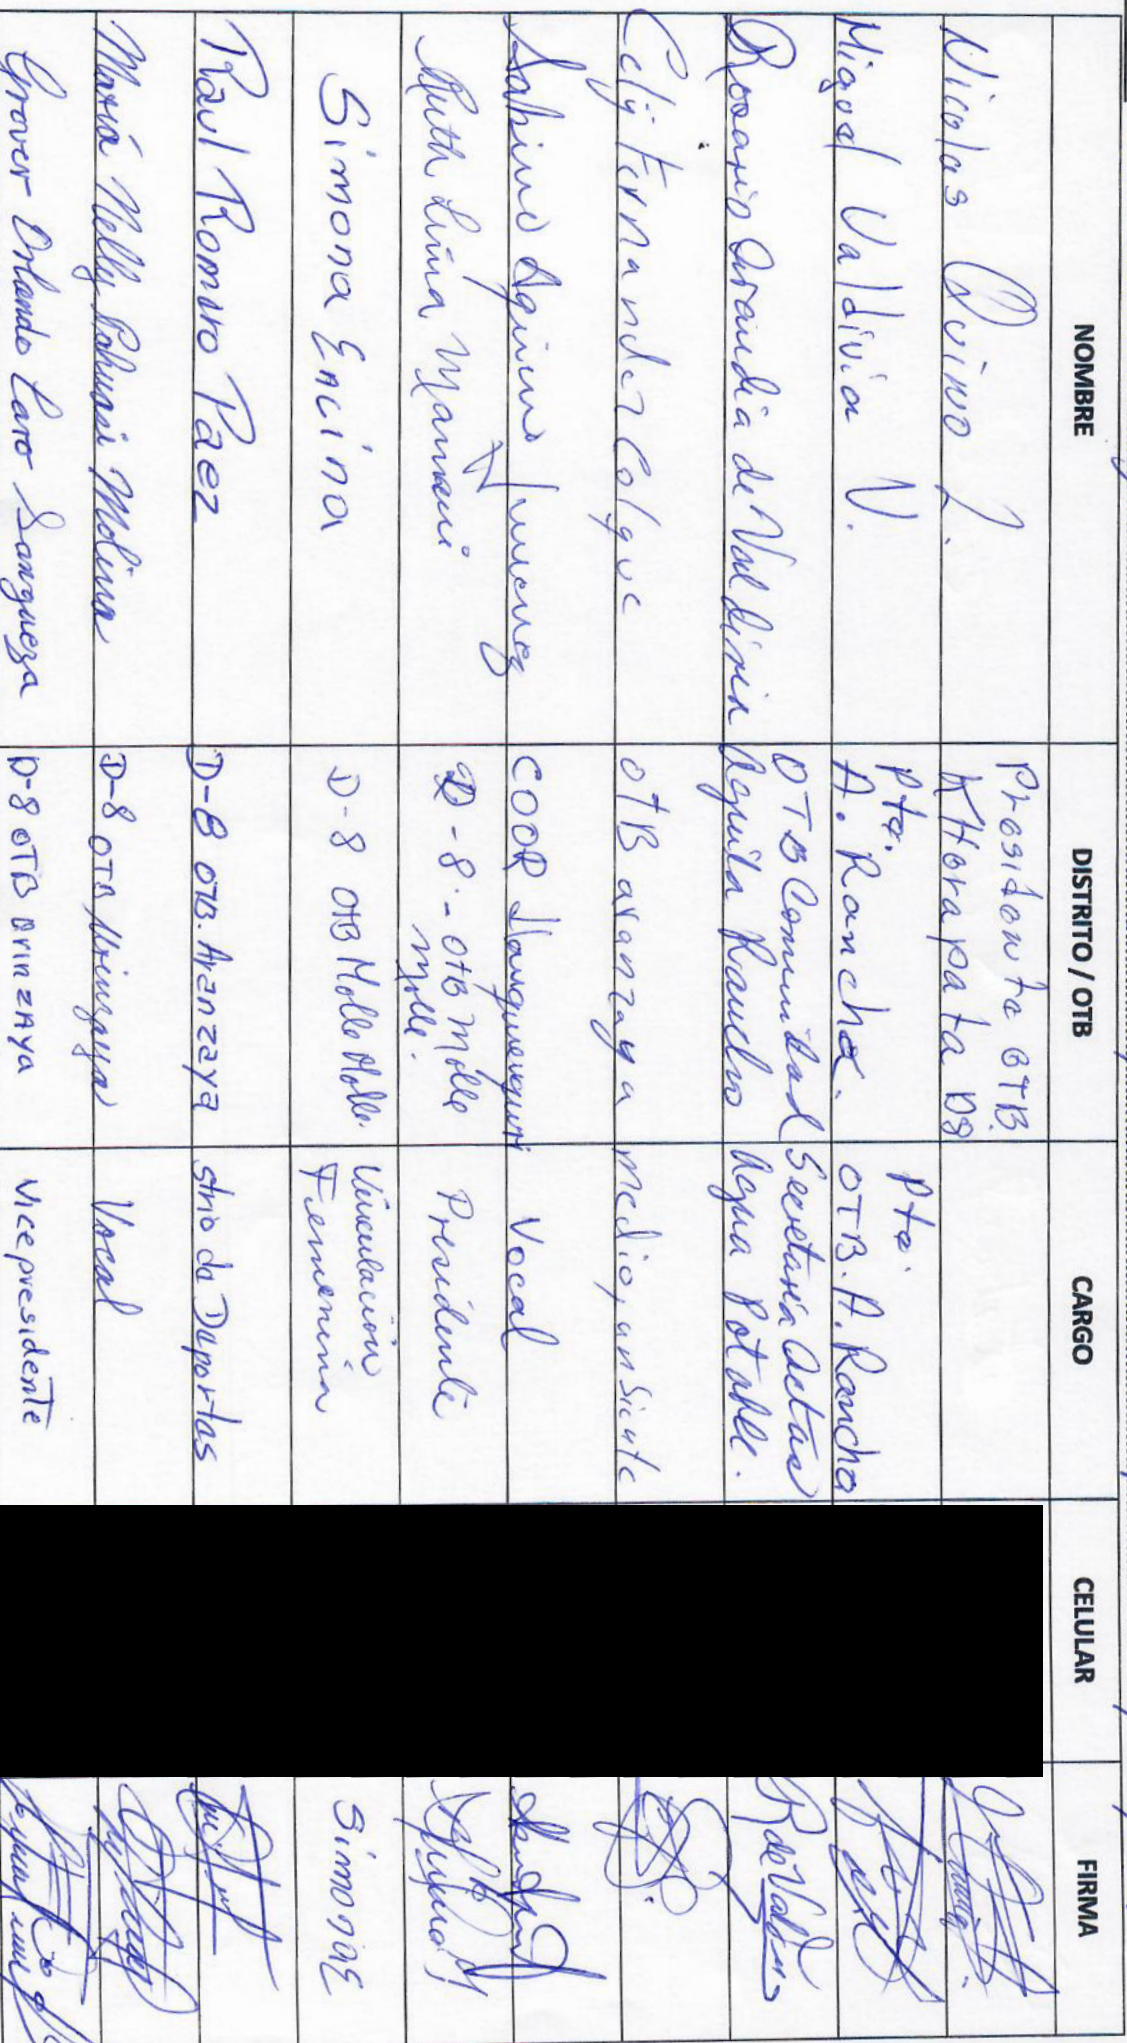 NOMBRE DISTRITO / OTB CARGO CELULAR FIRMA
Nicolas Quino L. Presidente OTB
KHorapata D8
Migael Valdivia V. Pte. A. Rancho. Pte. OTB. A. Rancho
Rosario Arandia de Valdivia OTB Comunidad Aguila Rancho Secretaria Actas Agua Potable.
Fernandez Colque OTB aranzaya medio, ansiente
Sabino Aquino Jimenez COOP Vocal
Ruth Lima Mamani D-8 - OTB Molle Molle. Presidente
Simona Encina D-8 OTB Molle Molle. Vinculacion Femenina Simona E
Raul Romero Paez D-8 OTB. Aranzaya Strio de Deportes
Maria Nelly Molina D-8 OTB Vocal
Grover Orlando Caro Sangueza D-8 OTB Arinzaya Vicepresidente